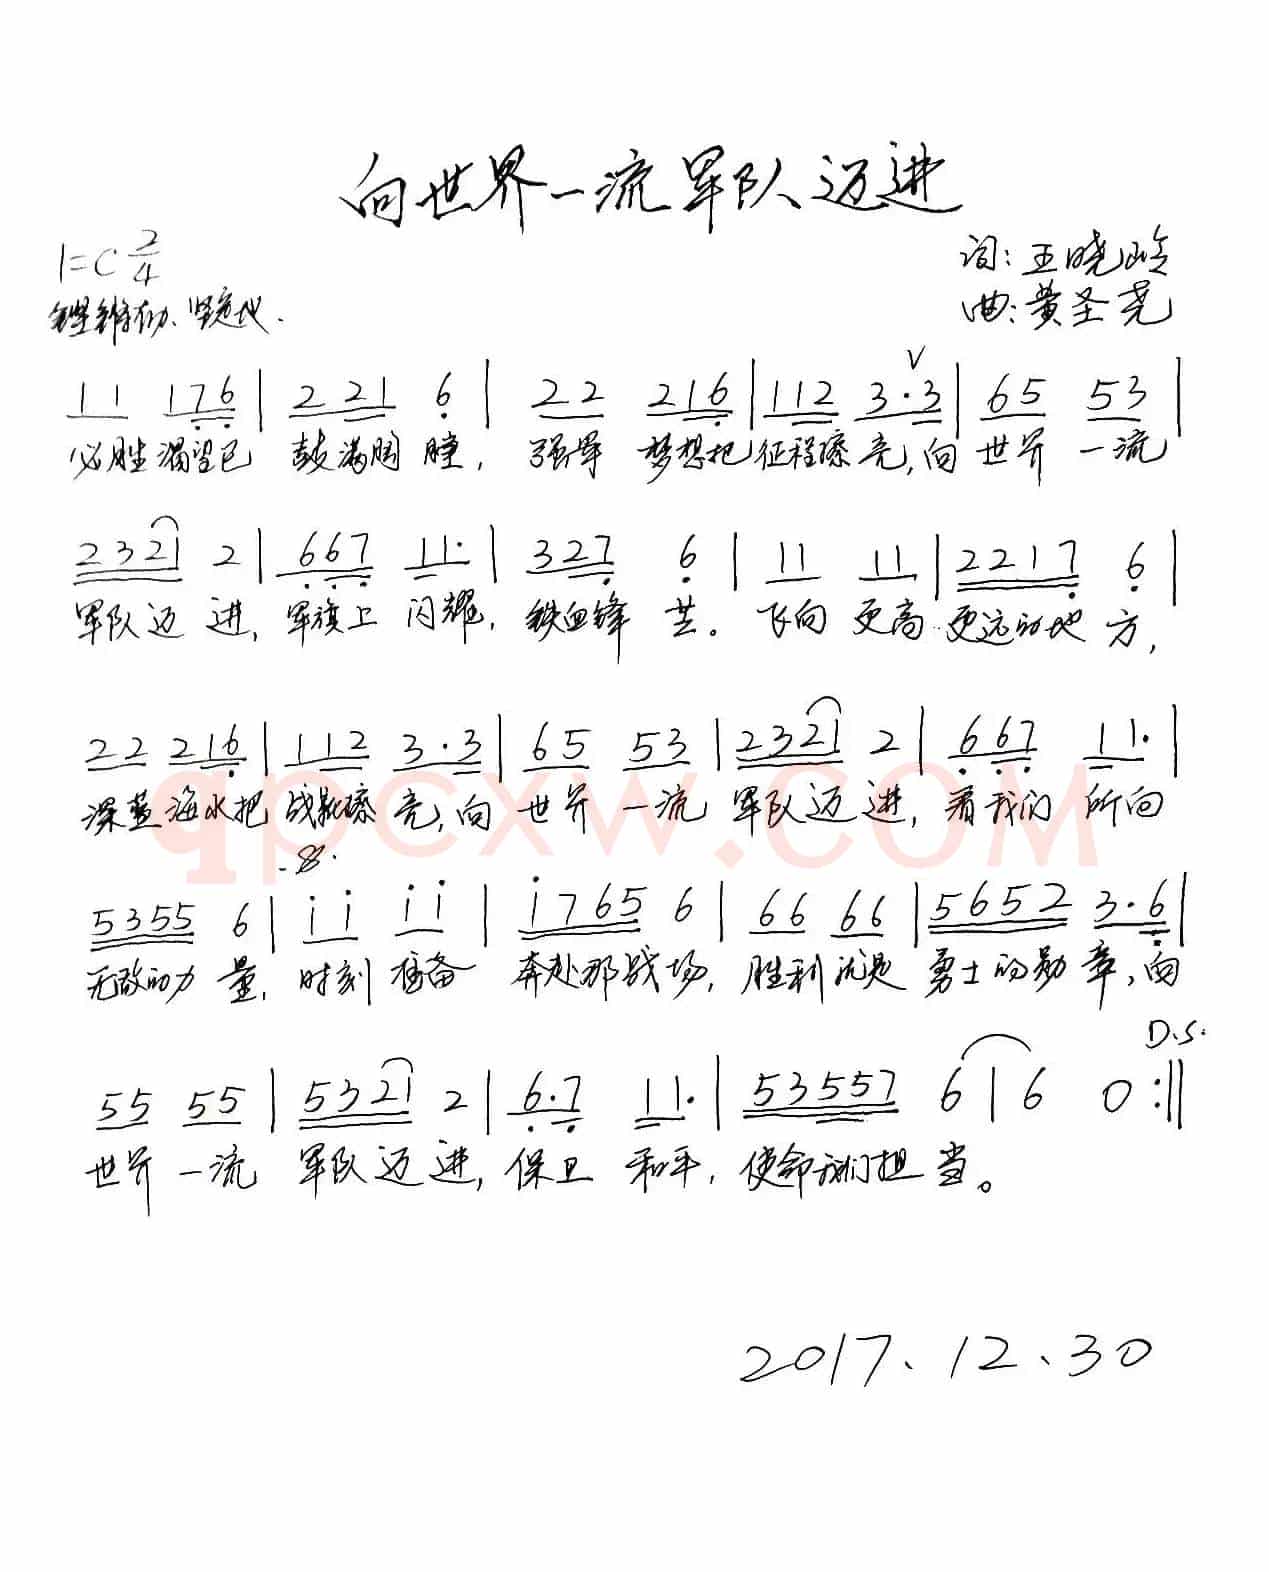 向世界一流军队迈进
1=C 2/4
词:王晓岭
铿锵有力、坚定地.
曲:黄圣尧
V
11 176 | 2 21 6 | 22 216 | 112 3·3 | 65 53 |
必胜渴望已 鼓满胸膛, 强军 梦想把征程擦亮,向 世界 一流
2321 2 | 667 11· | 327 6 | 11 11 | 2217 6 |
军队迈进, 军旗上 闪耀, 铁血锋芒。 飞向 更高 更远的地方,
22 216 | 112 3·3 | 65 53 | 2321 2 | 667 11· |
深蓝海水把 战靴擦亮,向 世界 一流 军队迈进, 看我们 所向
qpcxw.com
5355 6 | ii ii | i765 6 | 66 66 | 5652 3·6 |
无敌的力量, 时刻 准备 奔赴那战场, 胜利就是 勇士的勋章,向
D.S.
55 55 | 5321 2 | 6·7 11· | 53557 6 | 6 0 :||
世界 一流 军队迈进, 保卫 和平, 使命我们担当。
2017.12.30